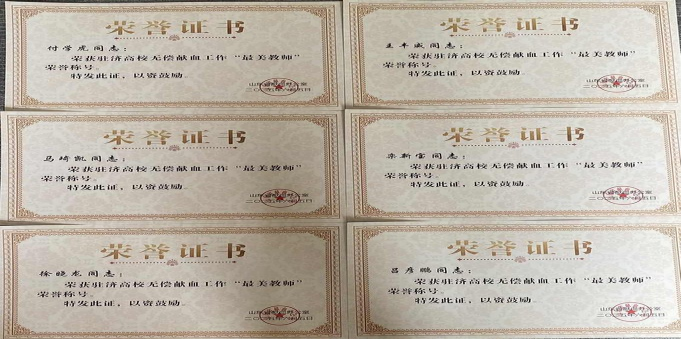 荣誉证书
付学虎同志：
荣获驻济高校无偿献血工作“最美教师”
荣誉称号。
特发此证，以资鼓励。
荣誉证书
王丰威同志：
荣获驻济高校无偿献血工作“最美教师”
荣誉称号。
特发此证，以资鼓励。
荣誉证书
马琦凯同志：
荣获驻济高校无偿献血工作“最美教师”
荣誉称号。
特发此证，以资鼓励。
荣誉证书
栾新富同志：
荣获驻济高校无偿献血工作“最美教师”
荣誉称号。
特发此证，以资鼓励。
荣誉证书
徐晓龙同志：
荣获驻济高校无偿献血工作“最美教师”
荣誉称号。
特发此证，以资鼓励。
荣誉证书
吕彦鹏同志：
荣获驻济高校无偿献血工作“最美教师”
荣誉称号。
特发此证，以资鼓励。